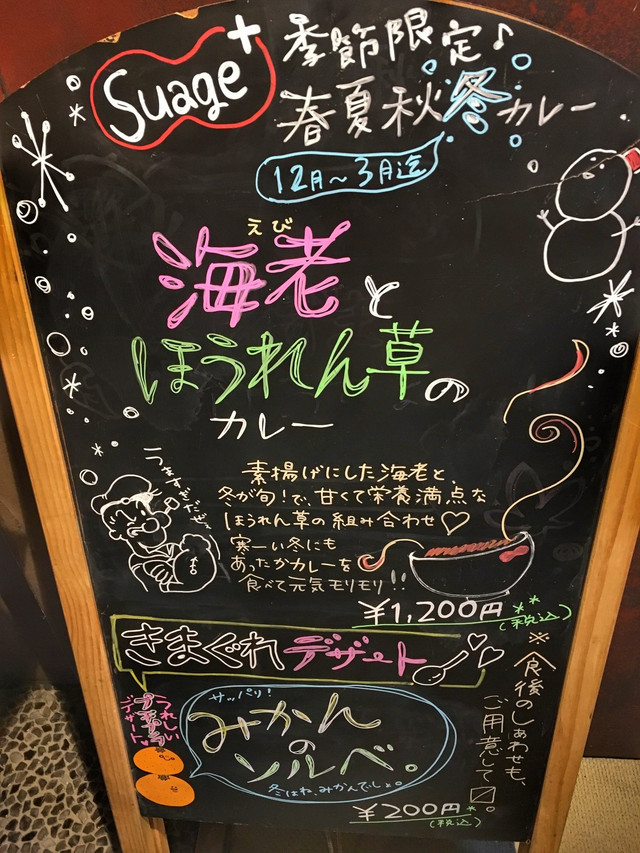 Suage+
季節限定♪
春夏秋冬カレー
12月～3月迄
えび
海老と
ほうれん草の
カレー
うますぎだぜ。
素揚げにした海老と、
冬が旬!で、甘くて栄養満点な
ほうれん草の組み合わせ♡
寒ーい冬にも
あったかカレーを
食べて元気モリモリ!!
¥1,200円
(税込)
きまぐれデザート
※食後のしあわせも、
ご用意して〼。
うれしい
プチプラ
デザート
サッパリ!
みかん
の
ソルベ。
冬はね、みかんでしょ。
¥200円
(税込)